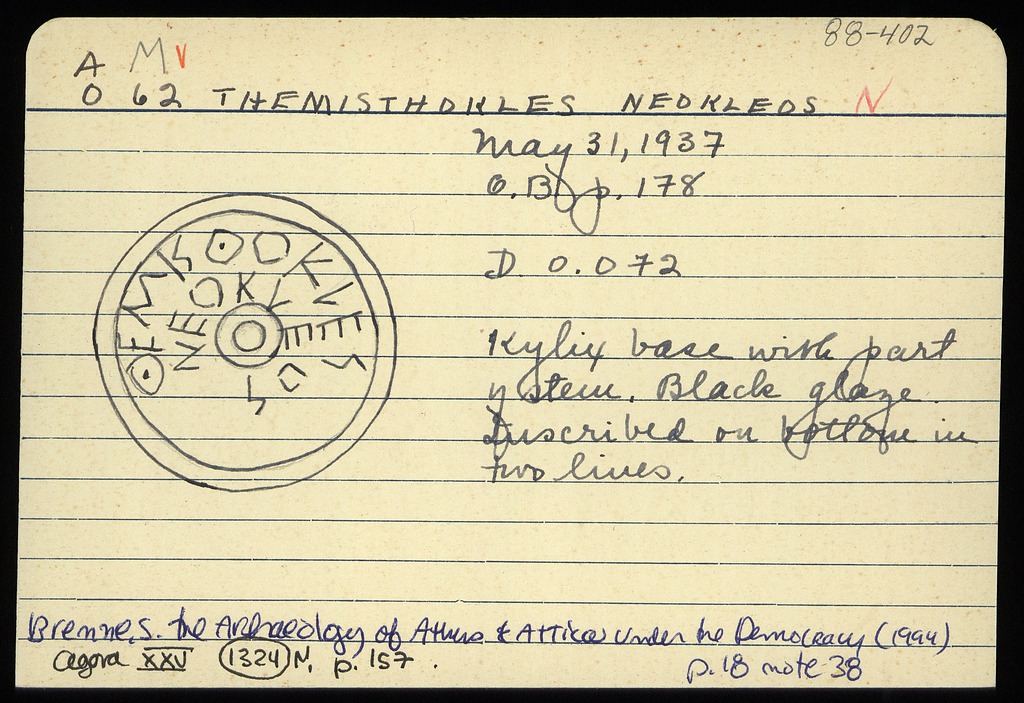 88-402
A M V
O 62 THEMISTHOKLES NEOKLEOS N
May 31, 1937
O.B. p. 178
D. 0.072
ΝΕΟΚΛΕΟΣ
Kylix base with part
of stem. Black glaze.
Inscribed on bottom in
two lines.
Brenne, S. The Archaeology of Athens & Attica under the Democracy (1994)
Agora XXV 1324 N, p. 157.
p. 18 note 38